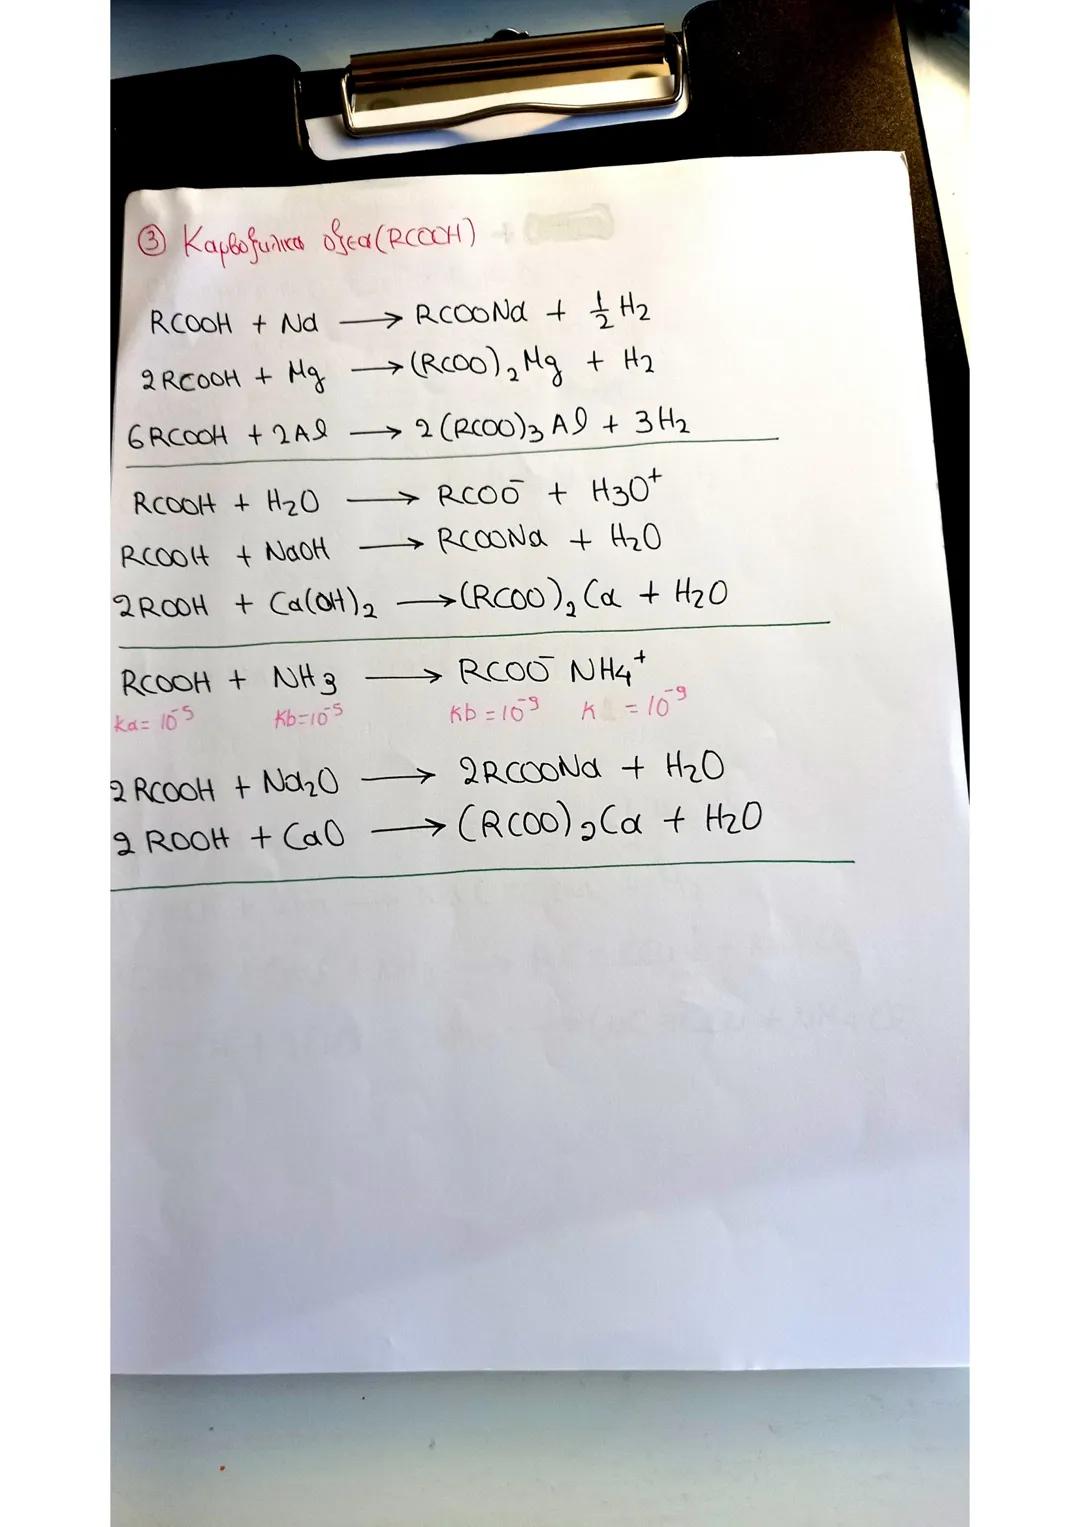 ③ Καρβοξυλικα οξεα (RCOOH) +
RCOOH + Na → RCOONa + ½ H₂
2RCOOH + Mg → (RCOO)₂Mg + H₂
6RCOOH + 2Al → 2(RCOO)₃Al + 3H₂
RCOOH + H₂O → RCOO⁻ + H₃O⁺
RCOOH + NaOH → RCOONa + H₂O
2ROOH + Ca(OH)₂ → (RCOO)₂Ca + H₂O
RCOOH + NH₃ → RCOO⁻ NH₄⁺
ka = 10⁻⁵ Kb=10⁻⁵ Kb = 10⁻⁹ K = 10⁻⁹
2RCOOH + Na₂O → 2RCOONa + H₂O
2ROOH + CaO → (RCOO)₂Ca + H₂O